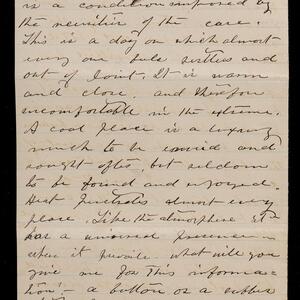 is a condition imposed by
the necessities of the case.
This is a day on which almost
every one feels restless and
out of joint. It is warm
and close, and therefore
uncomfortable in the extreme.
A cool place is a luxury
much to be envied and
sought after, but seldom
to be found and enjoyed.
Heat penetrates almost every
place. Like the atmosphere it
has a universal presence
when it prevails. What will you
give me for this informa-
tion - a button or a rubber